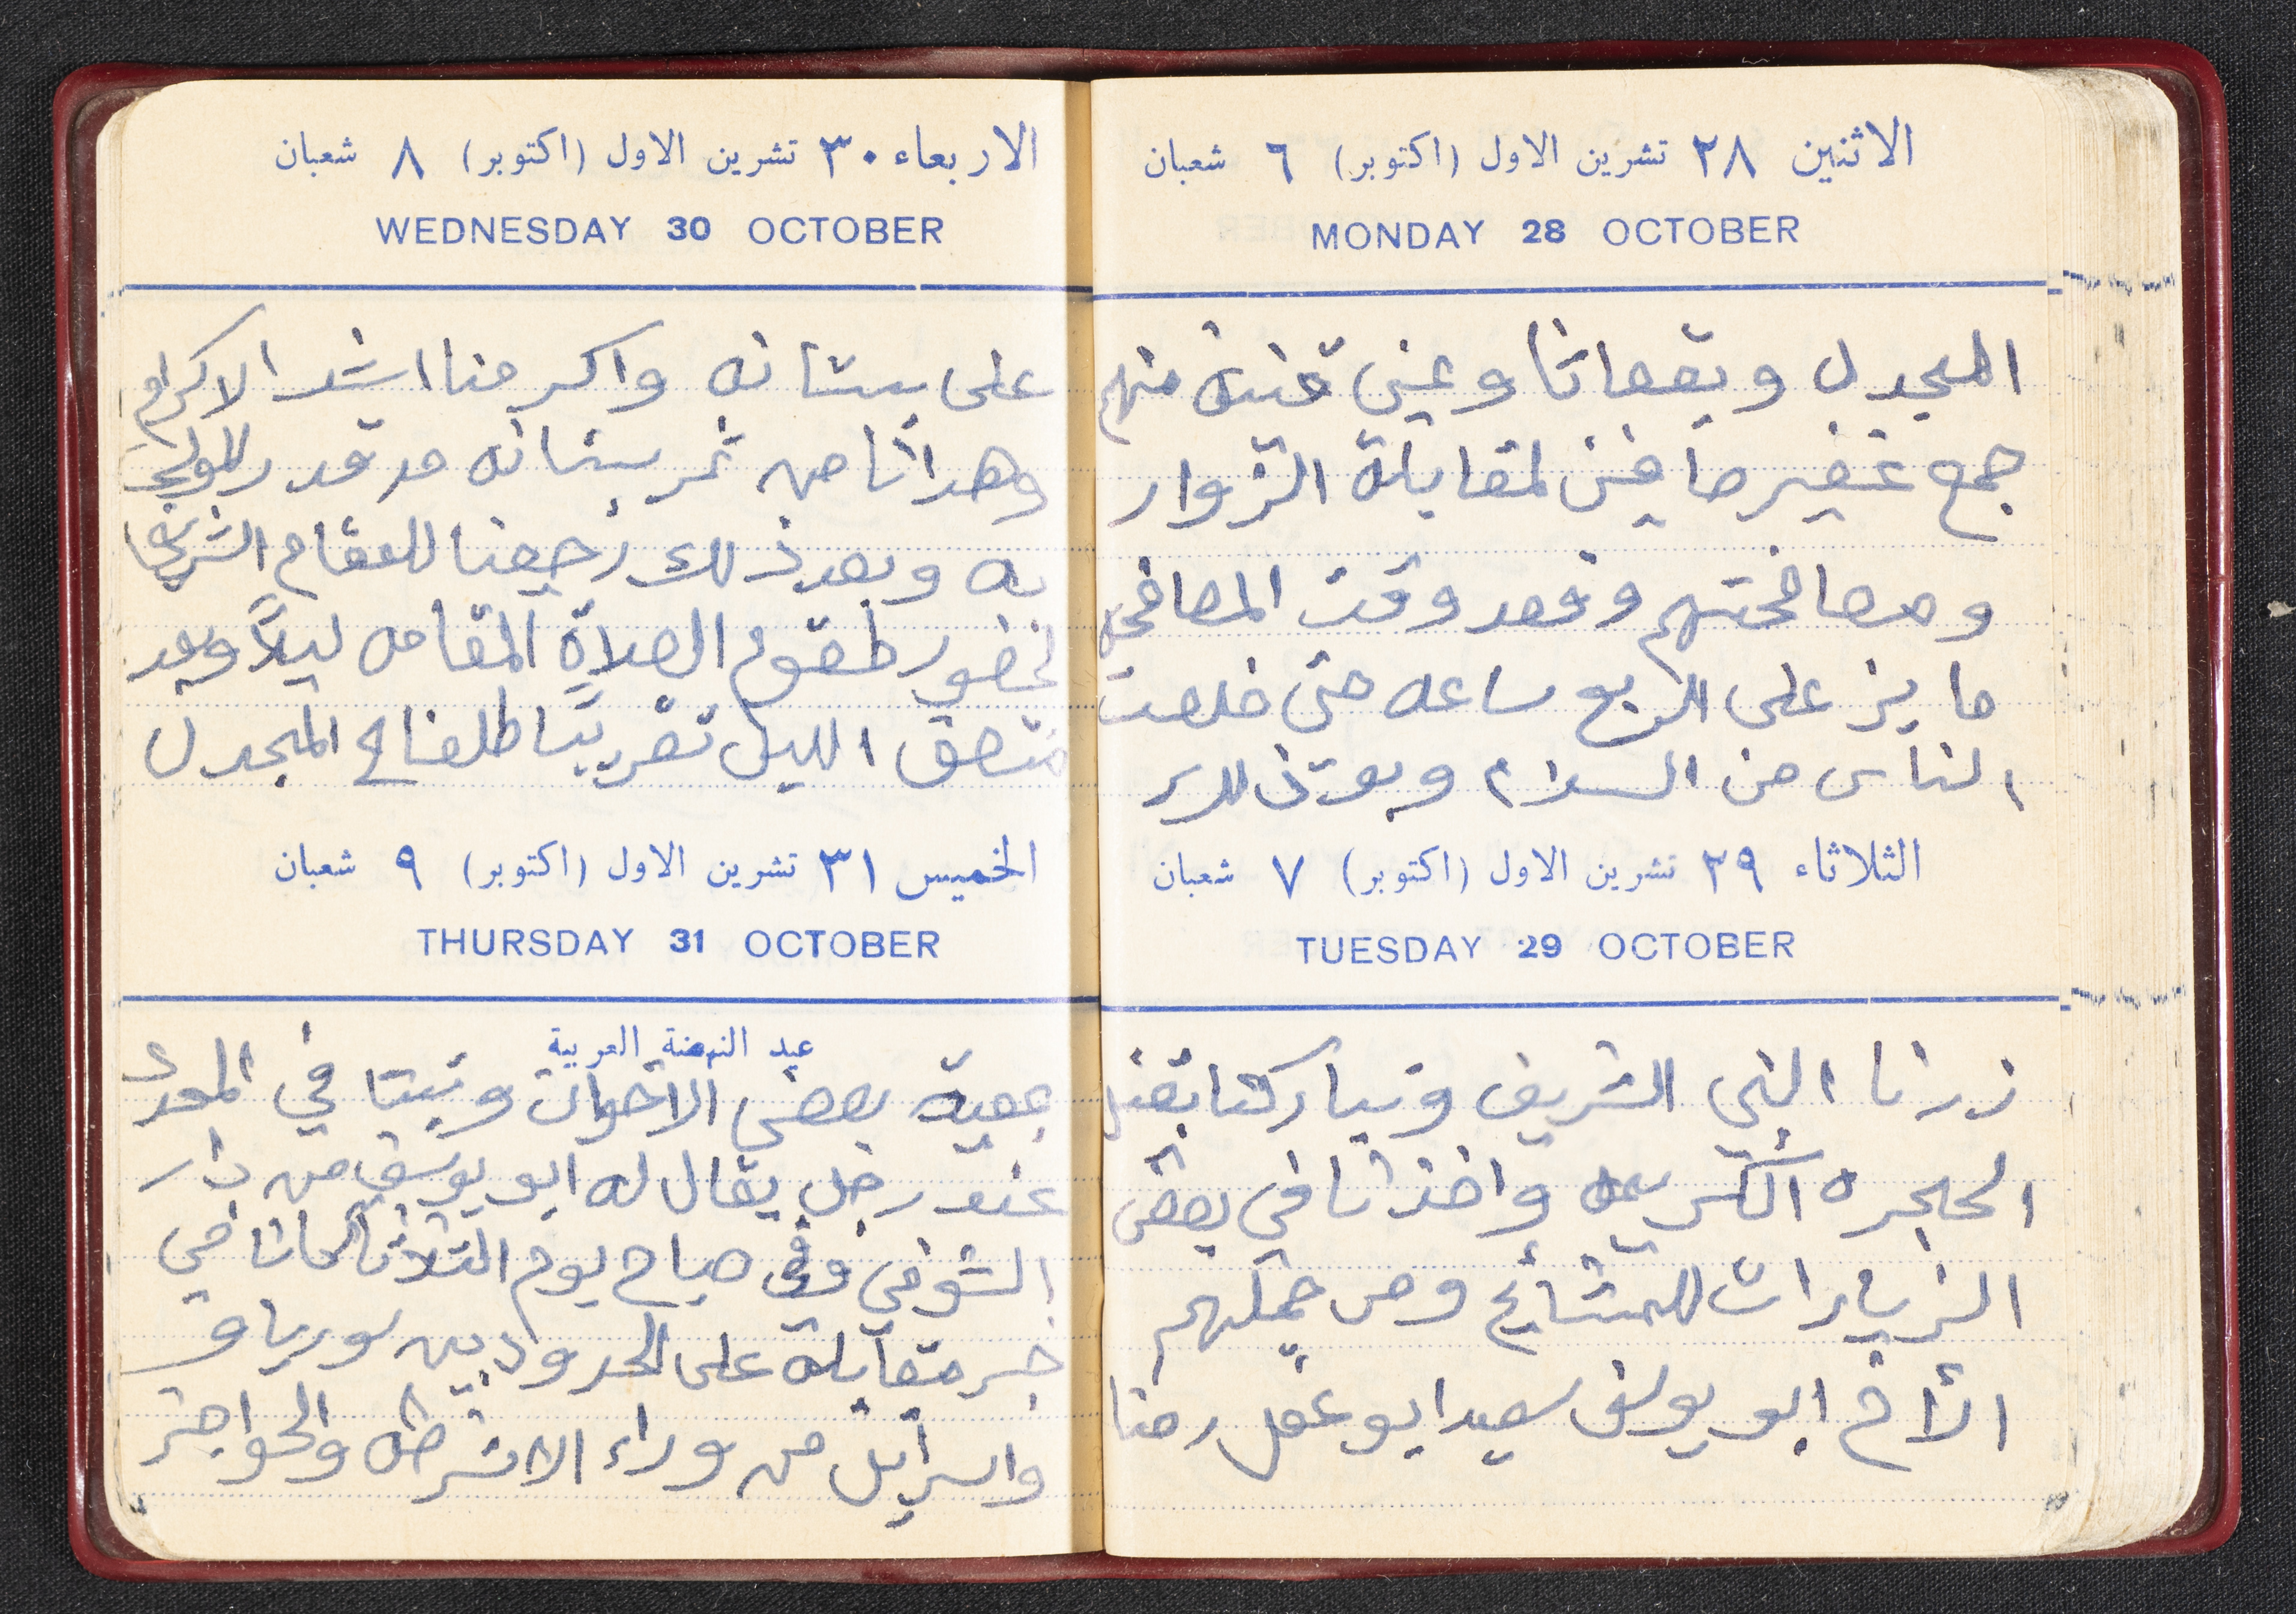 الاثنين ٢٨ تشرين الاول (اكتوبر) ٦ شعبان
MONDAY 28 OCTOBER
المجدل وبقعاثا وعين قنيه منهم
جمع غفير صافين لمقابلة الزوار
ومصافحتهم وقعد وقت المصافحه
ما يز على الربع ساعه حتى خلصت
الناس من السلام وبعو
الثلاثاء ٢٩ تشرين الاول (اكتوبر) ٧ شعبان
TUESDAY 29 OCTOBER
زرنا النبي الشريف وتباركنا بتقبيل
الحجره الكريمه واخذنا في بعض
الزيارات للمشائخ ومن جملهم
الأخ ابو يوسف سعيد ابو عقل رحنا
الاربعاء ٣٠ تشرين الاول (اكتوبر) ٨ شعبان
WEDNESDAY 30 OCTOBER
على بستانه واكرمنا اشد الاكرام
وهدانا من ثمر بستانه
به وبعد ذلك رجعنا للمقام الشريف
لحضور طقوم الصلاة المقامه ليلاً وبعد
منتصف الليل تقريبًا طلعنا المجدل
الخميس ٣١ تشرين الاول (اكتوبر) ٩ شعبان
THURSDAY 31 OCTOBER
عيد النهضة العربية
بمعية بعض الاخوان وبتنا في المجدل
عند رجل يقال له ابو يوسف من دار
الشوفي وفي صباح يوم الثلاثا كانا في
خبر مقابله على الحدود بين سوريا و
واسرايل من وراء الاشرطه والحواجز